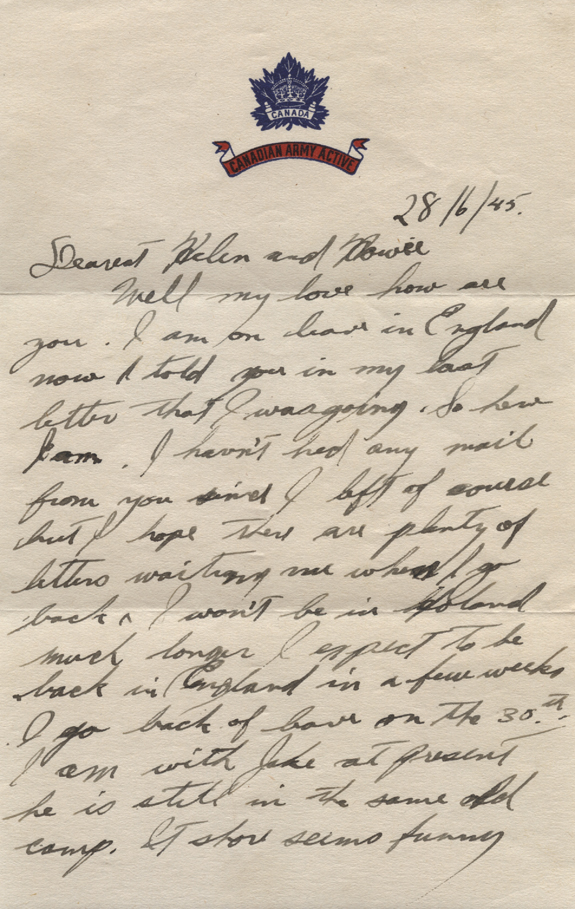 CANADA
CANADIAN ARMY ACTIVE
28/6/45.
Dearest Helen and Howie
Well my love how are
you. I am on leave in England
now I told you in my last
letter that I was going. So here
I am. I havn't hed any mail
from you since I left of course
but I hope there are plenty of
letters waiting me when I go
back. I won't be in Holand
much longer I expect to be
back in England in a few weeks
I go back of leave on the 30.th.
I am with Jake at present
he is still in the same old
camp. It shore seems funny